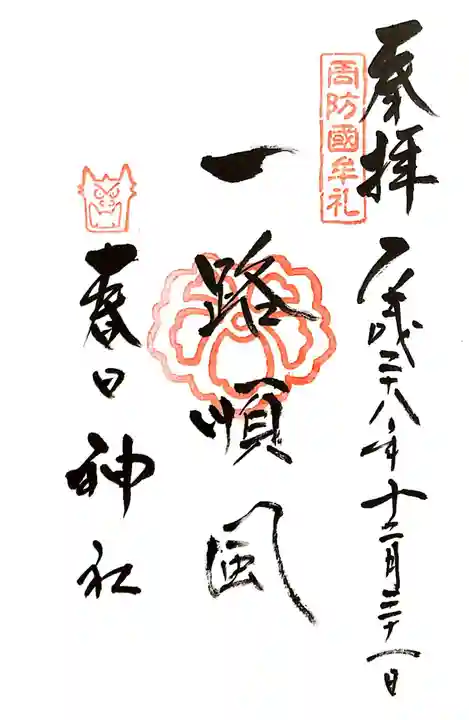 奉拝
平成二十八年十二月三十一日
周防國牟礼
一路順風
春日神社